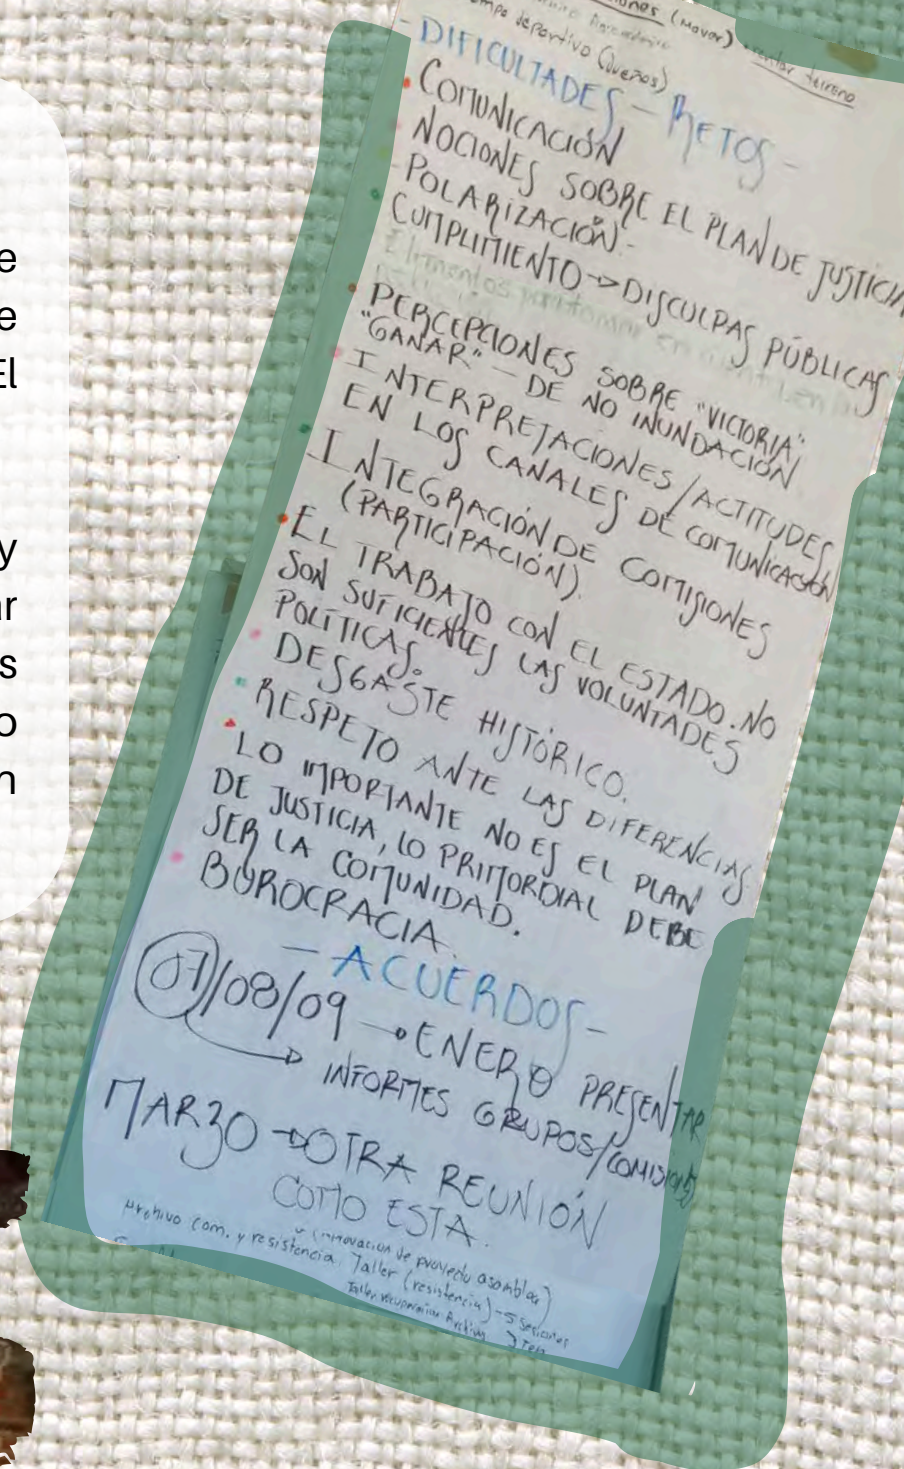 (Mayor)
deportivo (Dueños)
terreno
- DIFICULTADES - RETOS -
COMUNICACIÓN
NOCIONES SOBRE EL PLAN DE JUSTICIA
POLARIZACIÓN.
CUMPLIMIENTO → DISCULPAS PÚBLICAS
PERCEPCIONES SOBRE "VICTORIA",
"GANAR" - DE NO INUNDACIÓN
INTERPRETACIONES / ACTITUDES
EN LOS CANALES DE COMUNICACIÓN
INTEGRACIÓN DE COMISIONES
(PARTICIPACIÓN).
EL TRABAJO CON EL ESTADO. NO
SON SUFICIENTES LAS VOLUNTADES
POLÍTICAS.
DESGASTE HISTÓRICO.
RESPETO ANTE LAS DIFERENCIAS
LO IMPORTANTE NO ES EL PLAN
DE JUSTICIA, LO PRIMORDIAL DEBE
SER LA COMUNIDAD.
BUROCRACIA.
- ACUERDOS -
07/08/09 → ENERO PRESENTAR
INFORMES GRUPOS/COMISIONES
MARZO → OTRA REUNIÓN
COMO ESTA.
de proyecto asamblea)
Archivo com. y resistencia. Taller (resistencia) - 5
Archivo
e
e
El
y
ar
s
o
n